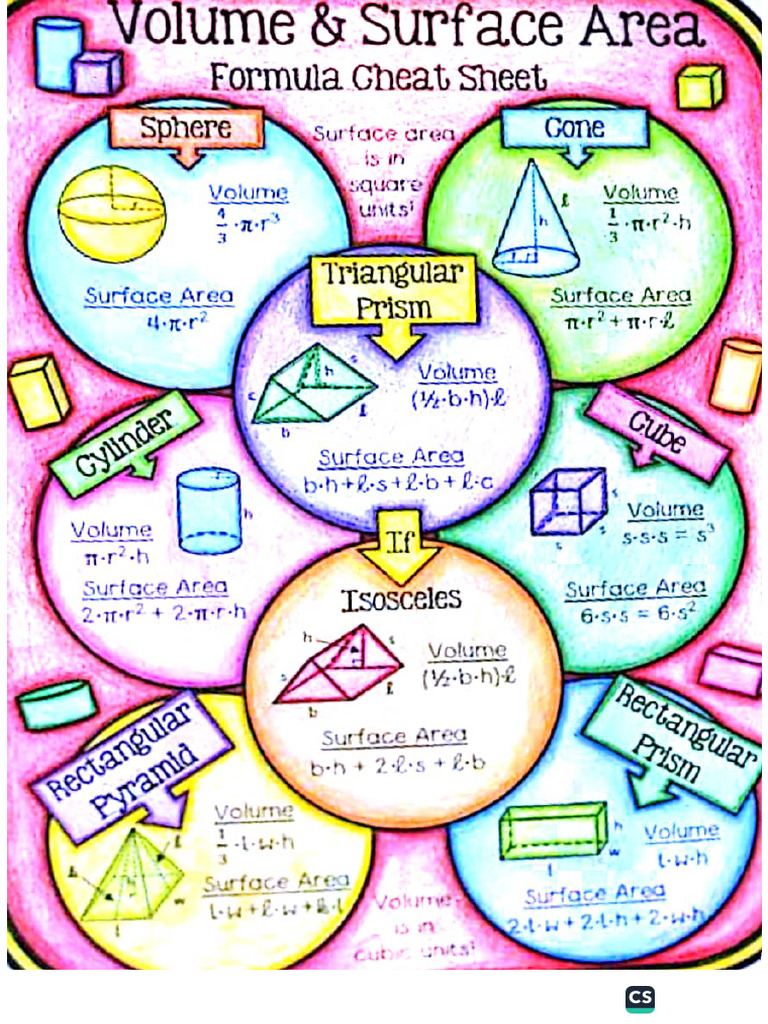 Volume & Surface Area
Formula Cheat Sheet
Sphere
Volume
4/3 · π · r³
Surface Area
4 · π · r²
r
Surface area
is in
square
units!
Cone
l
h
r
Volume
1/3 · π · r² · h
Surface Area
π · r² + π · r · l
Triangular
Prism
h
s
c
l
b
Volume
(½ · b · h) · l
Surface Area
b · h + l · s + l · b + l · c
Cylinder
r
h
Volume
π · r² · h
Surface Area
2 · π · r² + 2 · π · r · h
Cube
s
s
s
Volume
s · s · s = s³
Surface Area
6 · s · s = 6 · s²
If
Isosceles
h
s
s
l
b
Volume
(½ · b · h) · l
Surface Area
b · h + 2 · l · s + l · b
Rectangular
Pyramid
h
w
l
Volume
1/3 · l · w · h
Surface Area
Rectangular
Prism
h
w
l
Volume
l · w · h
Surface Area
2 · l · w + 2 · l · h + 2 · w · h
Volume
is in
cubic units!
CS